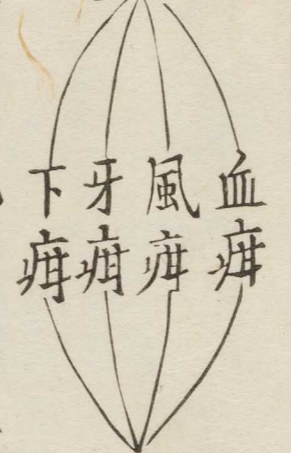 血疳
風疳
牙疳
下疳